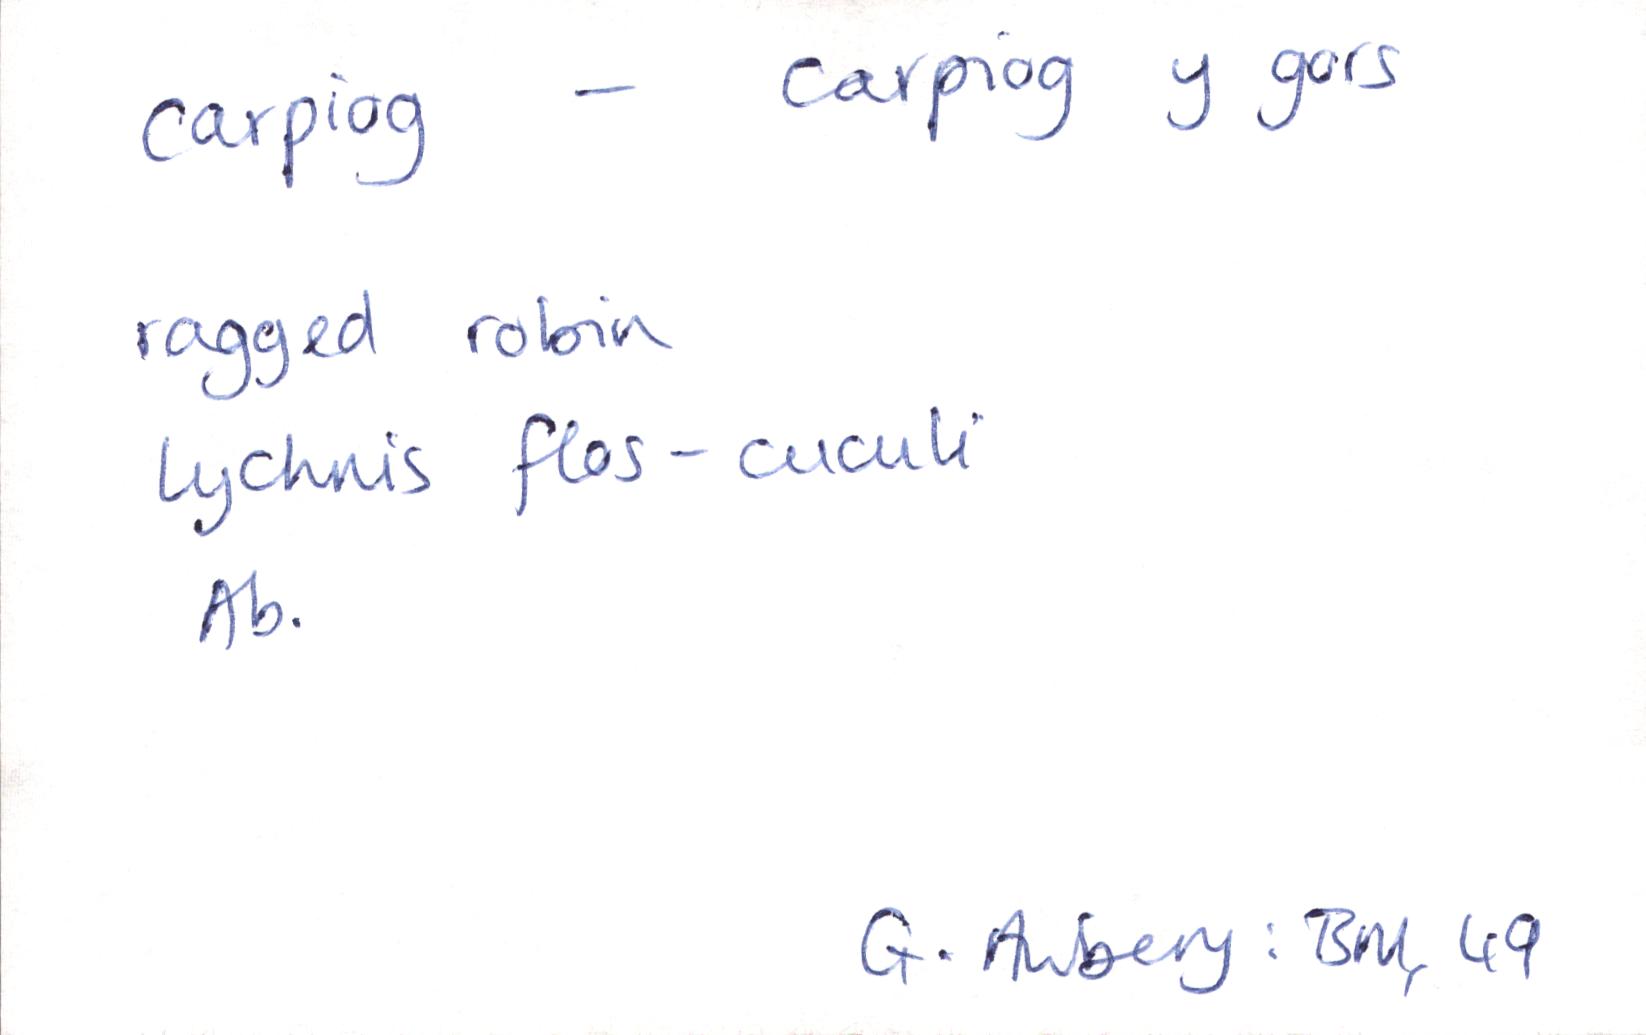 carpiog – carpiog y gors
ragged robin
Lychnis flos-cuculi
Ab.
G. Awbery: BM, 49